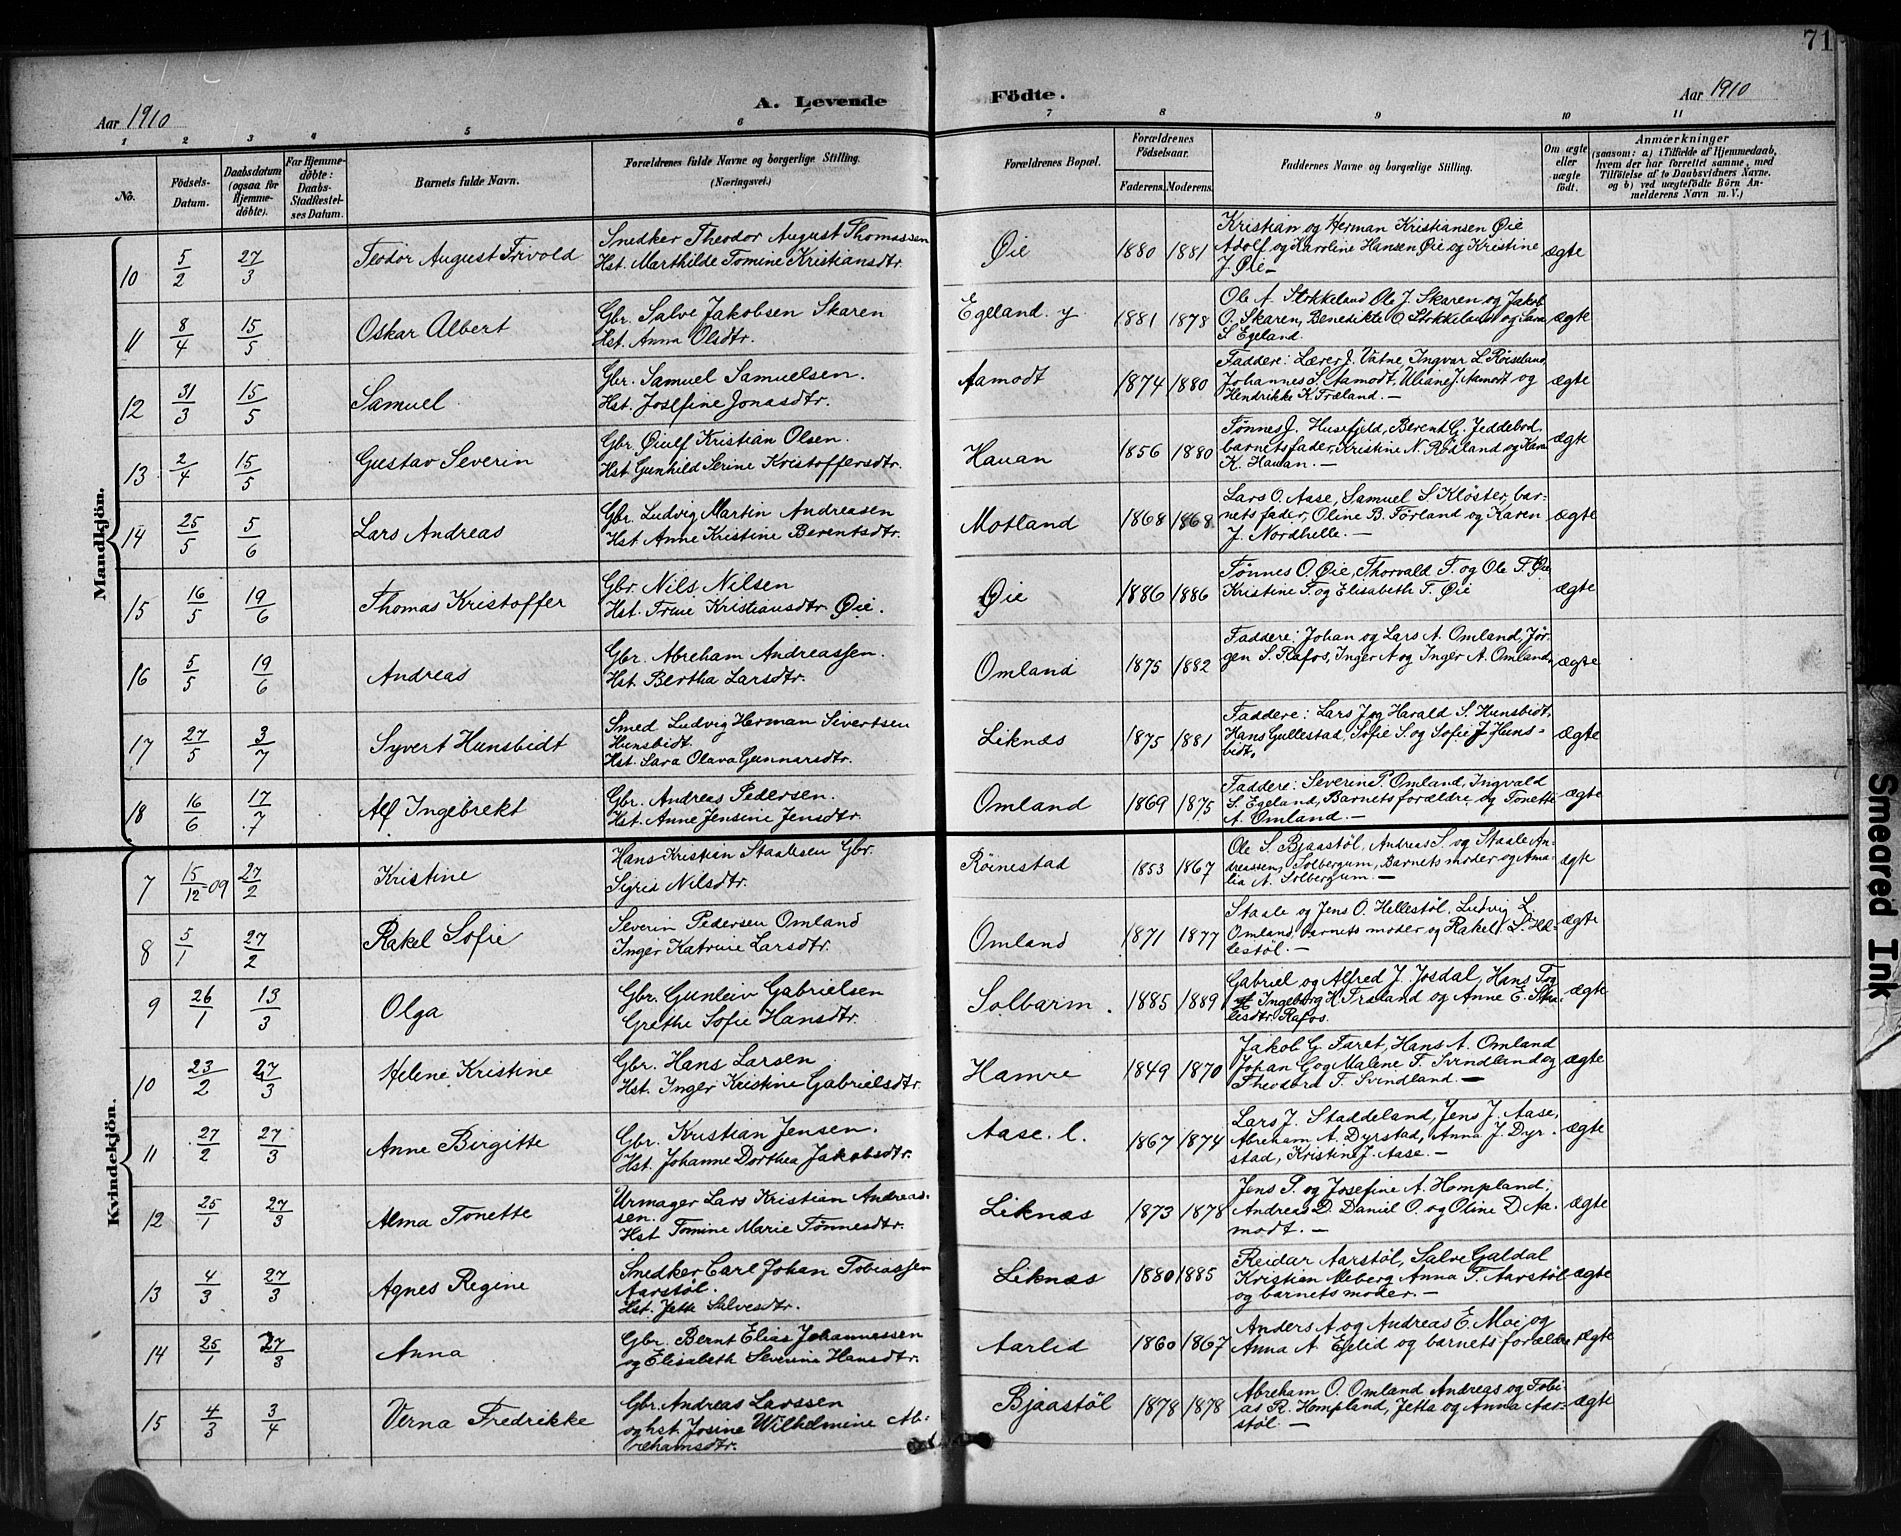 71
A. Levende Födte.
Aar 1910
Aar 1910
1 2 3 4 5 6 7 8 9 10 11
No.
Födsels-Datum.
Daabsdatum (ogsaa for Hjemme-döbte).
For Hjemme-döbte: Daabs-Stadfæstel-ses Datum.
Barnets fulde Navn.
Forældrenes fulde Navne og borgerlige Stilling. (Næringsvei.)
Forældrenes Bopæl.
Forældrenes Födselsaar.
Faderens. Moderens.
Faddernes Navne og borgerlige Stilling.
Om ægte eller uægte födt.
Anmærkninger
(saasom: a) i Tilfælde af Hjemmedaab, hvem der har forrettet samme, med Tilföielse af to Daabsvidners Navne. og b) ved uægtefödte Börn An-melderens Navn m. V.)
Mandkjön.
10 5/2 27/3 Teodor August Trivold Snedker Theodor August Thomassen
Hst. Marthilde Tomine Kristiansdtr. Øie 1880 1881 Kristian og Herman Kristiansen Øie
Adolf og Karoline Hansen Øie og Kristine
J. Øie— ægte
11 8/4 15/5 Oskar Albert Gbr. Salve Jakobsen Skaren
Hst. Anna Olsdtr. Egeland. y. 1881 1878 Ole A. Stokkeland Ole J. Skaren og Jakob
O. Skaren, Benedikte O Stokkeland og Sara
S Egeland. ægte
12 31/3 15/5 Samuel Gbr. Samuel Samuelsen.
Hst. Josefine Jonasdtr. Aamodt 1874 1880 Faddere: Lærer J. Vatne, Ingvar L Røiseland
Johannes S. Aamodt, Uliane J. Aamodt og
Hendrikke K. Træland. — ægte
13 2/4 15/5 Gustav Severin Gbr. Øiulf Kristian Olsen.
Hst. Gunhild Serine Kristoffersdtr. Hauan 1856 1880 Tønnes J. Husefjeld, Berent G. Jeddebrd
barnets fader, Kristine N. Rødland og Kara
K. Hauan. — ægte
14 25/5 5/6 Lars Andreas Gbr. Ludvig Martin Andreasen
Hst. Anne Kristine Berentsdtr. Motland 1868 1868 Lars O. Aase, Samuel S Kløster, bar-
nets fader, Oline B. Førland og Karen
J. Nordhelle. — ægte
15 16/5 19/6 Thomas Kristoffer Gbr. Nils Nilsen
Hst. Trine Kristiansdtr Øie. Øie 1886 1886 Tønnes O. Øie, Thorvald T. og Ole T. Øie
Kristine T. og Elisabeth T. Øie ægte
16 5/5 19/6 Andreas Gbr. Abreham Andreassen.
Hst. Bertha Larsdtr. Omland 1875 1882 Faddere: Johan og Lars A. Omland, Jør-
gen S. Rafos, Inger A og Inger A. Omland. ægte
17 27/5 3/7 Syvert Hunsbidt Smed Ludvig Herman Sivertsen
Hunsbidt.
Hst. Sara Olava Gunnarsdtr. Liknæs 1875 1881 Faddere: Lars J og Harald S. Hunsbidt,
Hans Gullestad, Sofie S. og Sofie J Huns-
bidt. ægte
18 16/6 17/7 Alf Ingebrekt Gbr. Andreas Pedersen.
Hst. Anne Jensine Jensdtr. Omland 1869 1875 Faddere: Severine P. Omland, Ingvald
S. Egeland, Barnets forældre og Tonette
A. Omland. — ægte
Kvindekjön.
7 15/12-09 27/2 Kristine Hans Kristian Staalesen Gbr.
Sigris Nilsdtr. Röinestad 1853 1867 Ole S. Bjaastøl, Andreas S. og Staale An-
dreassen, Solbergum, Barnets moder og Ama-
lia A. Solbergum. — ægte
8 5/1 27/2 Rakel Sofie Severin Pedersen Omland
Inger Katrine Larsdtr. Omland 1871 1877 Staale og Jens O. Hellestøl, Ludvig L
Omland, barnets moder og Rakel S. Hel-
lestøl. — ægte
9 26/1 13/3 Olga Gbr. Gunleiv Gabrielsen
Grethe Sofie Hansdtr. Solbarm. 1885 1889 Gabriel og Alfred J. Josdal, Hans
Ingeborg H. Træland og Anne E. Staa-
lesdtr. Rafos. ægte
10 23/2 27/3 Helene Kristine Gbr. Hans Larsen
Hst. Inger Kristine Gabrielsdtr. Hamre 1849 1870 Jakob G. Faret, Hans A. Omland
Johan G og Malene T. Svindland og
Theodora T. Svindland. — ægte
11 27/2 27/3 Anne Birgitte Gbr. Kristian Jensen.
Hst. Johanne Dorthea Jakobsdtr. Aase. l. 1867 1874 Lars J. Staddeland, Jens J. Aase,
Abreham A. Dyrstad, Anna J. Dyr-
stad, Kristin J. Aase. — ægte
12 25/1 27/3 Alma Tonette Urmager Lars Kristian Andreas-
sen.
Hst Tomine Marie Tønnesdtr. Liknæs 1873 1878 Jens P. og Josefine A. Hompland,
Andreas D. Daniel O. og Oline D. Aa-
modt. — ægte
13 4/3 27/3 Agnes Regine Snedker Carl Johan Tobiassen
Aarstøl.
Hst. Jette Salvesdtr. Liknæs 1880 1885 Reidar Aarstøl, Salve Galdal
Kristian Meberg Anna T. Aarstøl
og barnets moder. — ægte
14 25/1 27/3 Anna Gbr. Bernt Elias Johannessen
og Elisabeth Severine Hansdtr. Aarlid 1860 1867 Anders A og Andreas E. Moi og
Anna A. Egelid og barnets forældre ægte
15 4/3 3/4 Verna Fredrikke Gbr. Andreas Larssen
og hst. Josine Wilhelmine Ab-
rehamsdtr. Bjaastøl 1878 1878 Abreham O. Omland Andreas og Tobi-
as R. Hompland, Jetta og Anna Aar-
støl. — ægte
Smeared Ink